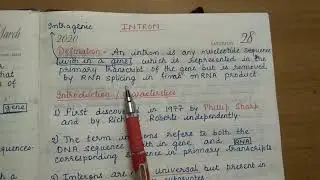 Intragenic
INTRON
March
2020
28
Definition:- An intron is any nucleotide sequence
(with in a gene) which is represented in the
primary transcript of the gene but is removed
by RNA splicing in final mRNA product
Introduction / Characteristics
1) First discovered in 1977 by Phillip Sharp
and by Rich Roberts independently.
gene
2) The term introns refer to both the
DNA sequence with in gene and RNA
corresponding sequence in primary transcripts
3) Introns are universal but present in